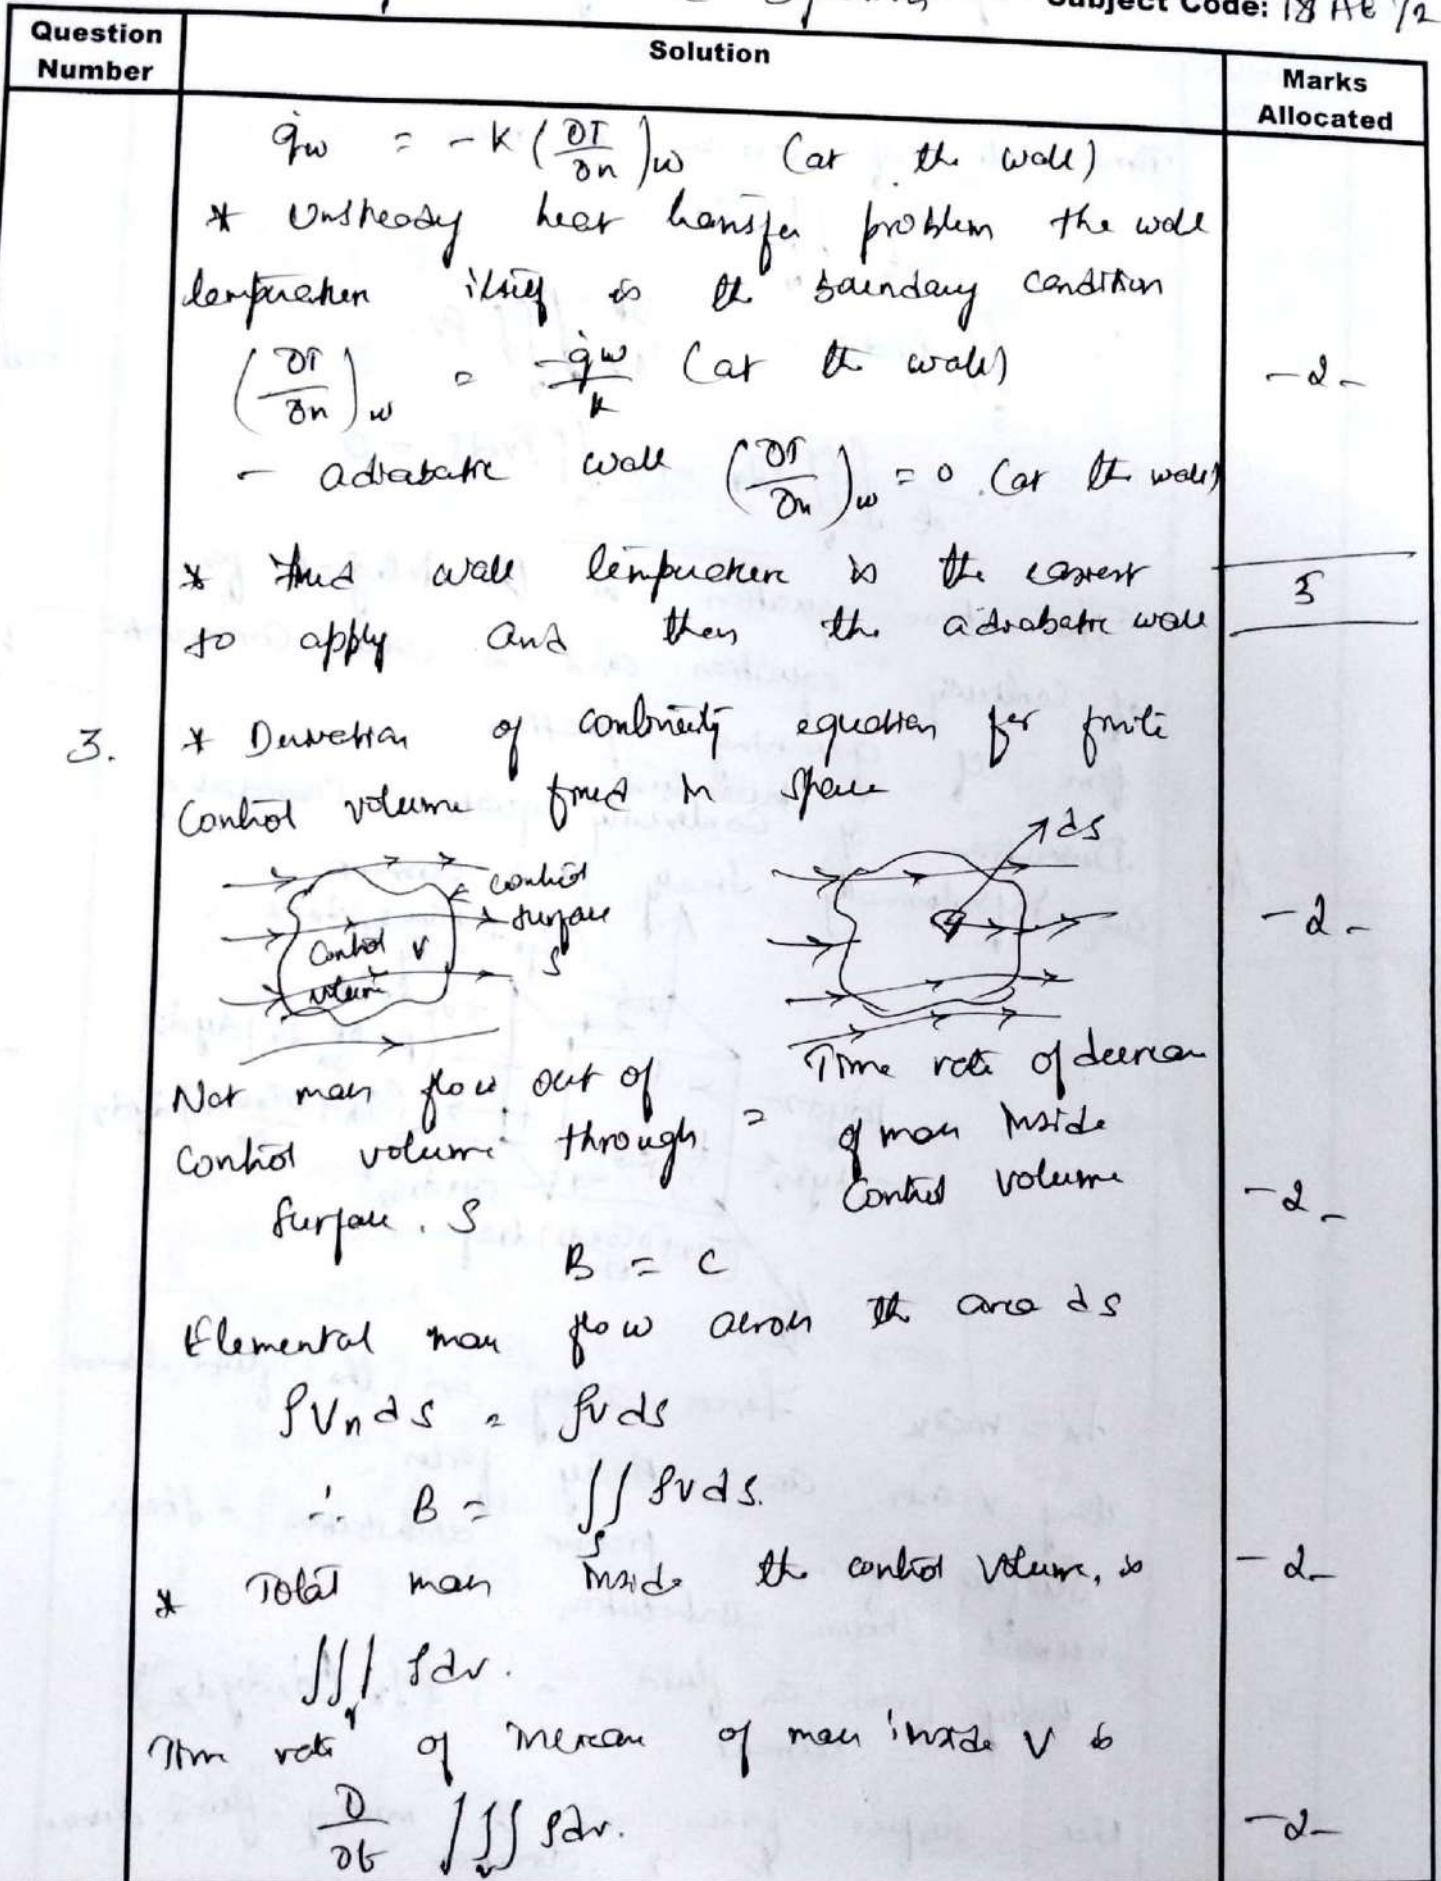 Subject Code: 18 AE 72
Question Number
Solution
Marks Allocated
q̇w = -K (∂T/∂n)w (at the wall)
* Unsteady heat transfer problem the wall
temperature itself is the boundary condition
(∂T/∂n)w = -q̇w/k (at the wall)
-2-
- adiabatic wall (∂T/∂n)w = 0 (at the wall)
* Fixed wall temperature is the easiest
5
to apply and then the adiabatic wall
3.
* Derivation of continuity equation for finite
Control volume fixed in space
dS
control
surface
S
Control V
volume
-2-
Net mass flow out of
control volume through
Surface. S
=
Time rate of decrease
of mass inside
Control volume
-2-
B = C
Elemental mass flow across the area dS
ρVn dS = ρv dS
∴ B = ∬S ρv dS.
* Total mass inside the control volume, is
-2-
∭V ρdv.
Time rate of increase of mass inside V is
∂/∂t ∭V ρdv.
-2-